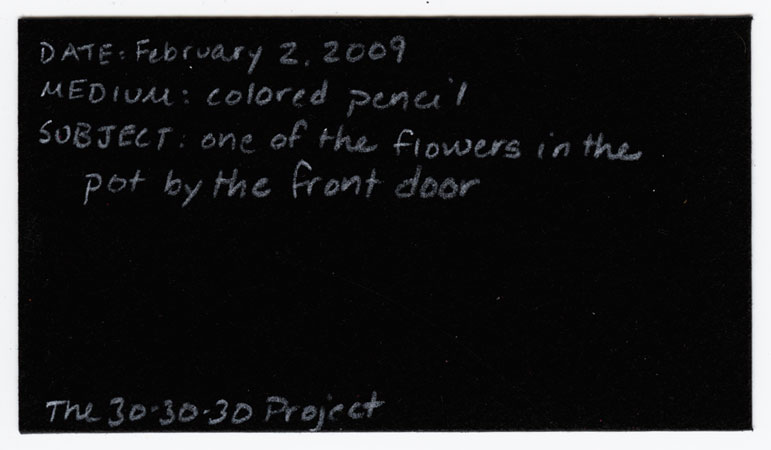 DATE: February 2, 2009
MEDIUM: colored pencil
SUBJECT: one of the flowers in the
pot by the front door
The 30-30-30 Project